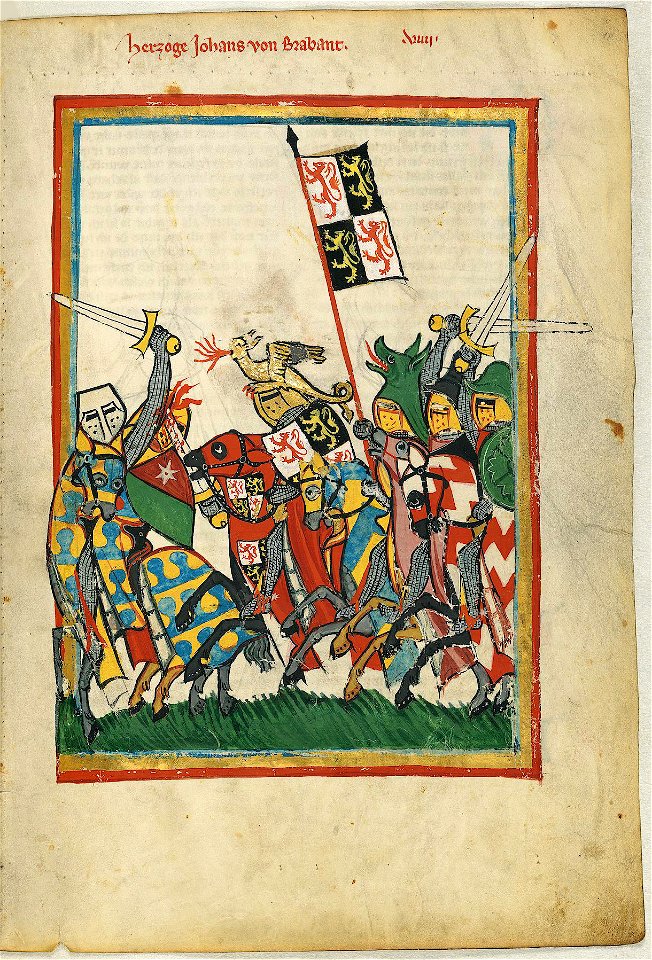 herzoge Johans von Brabant.